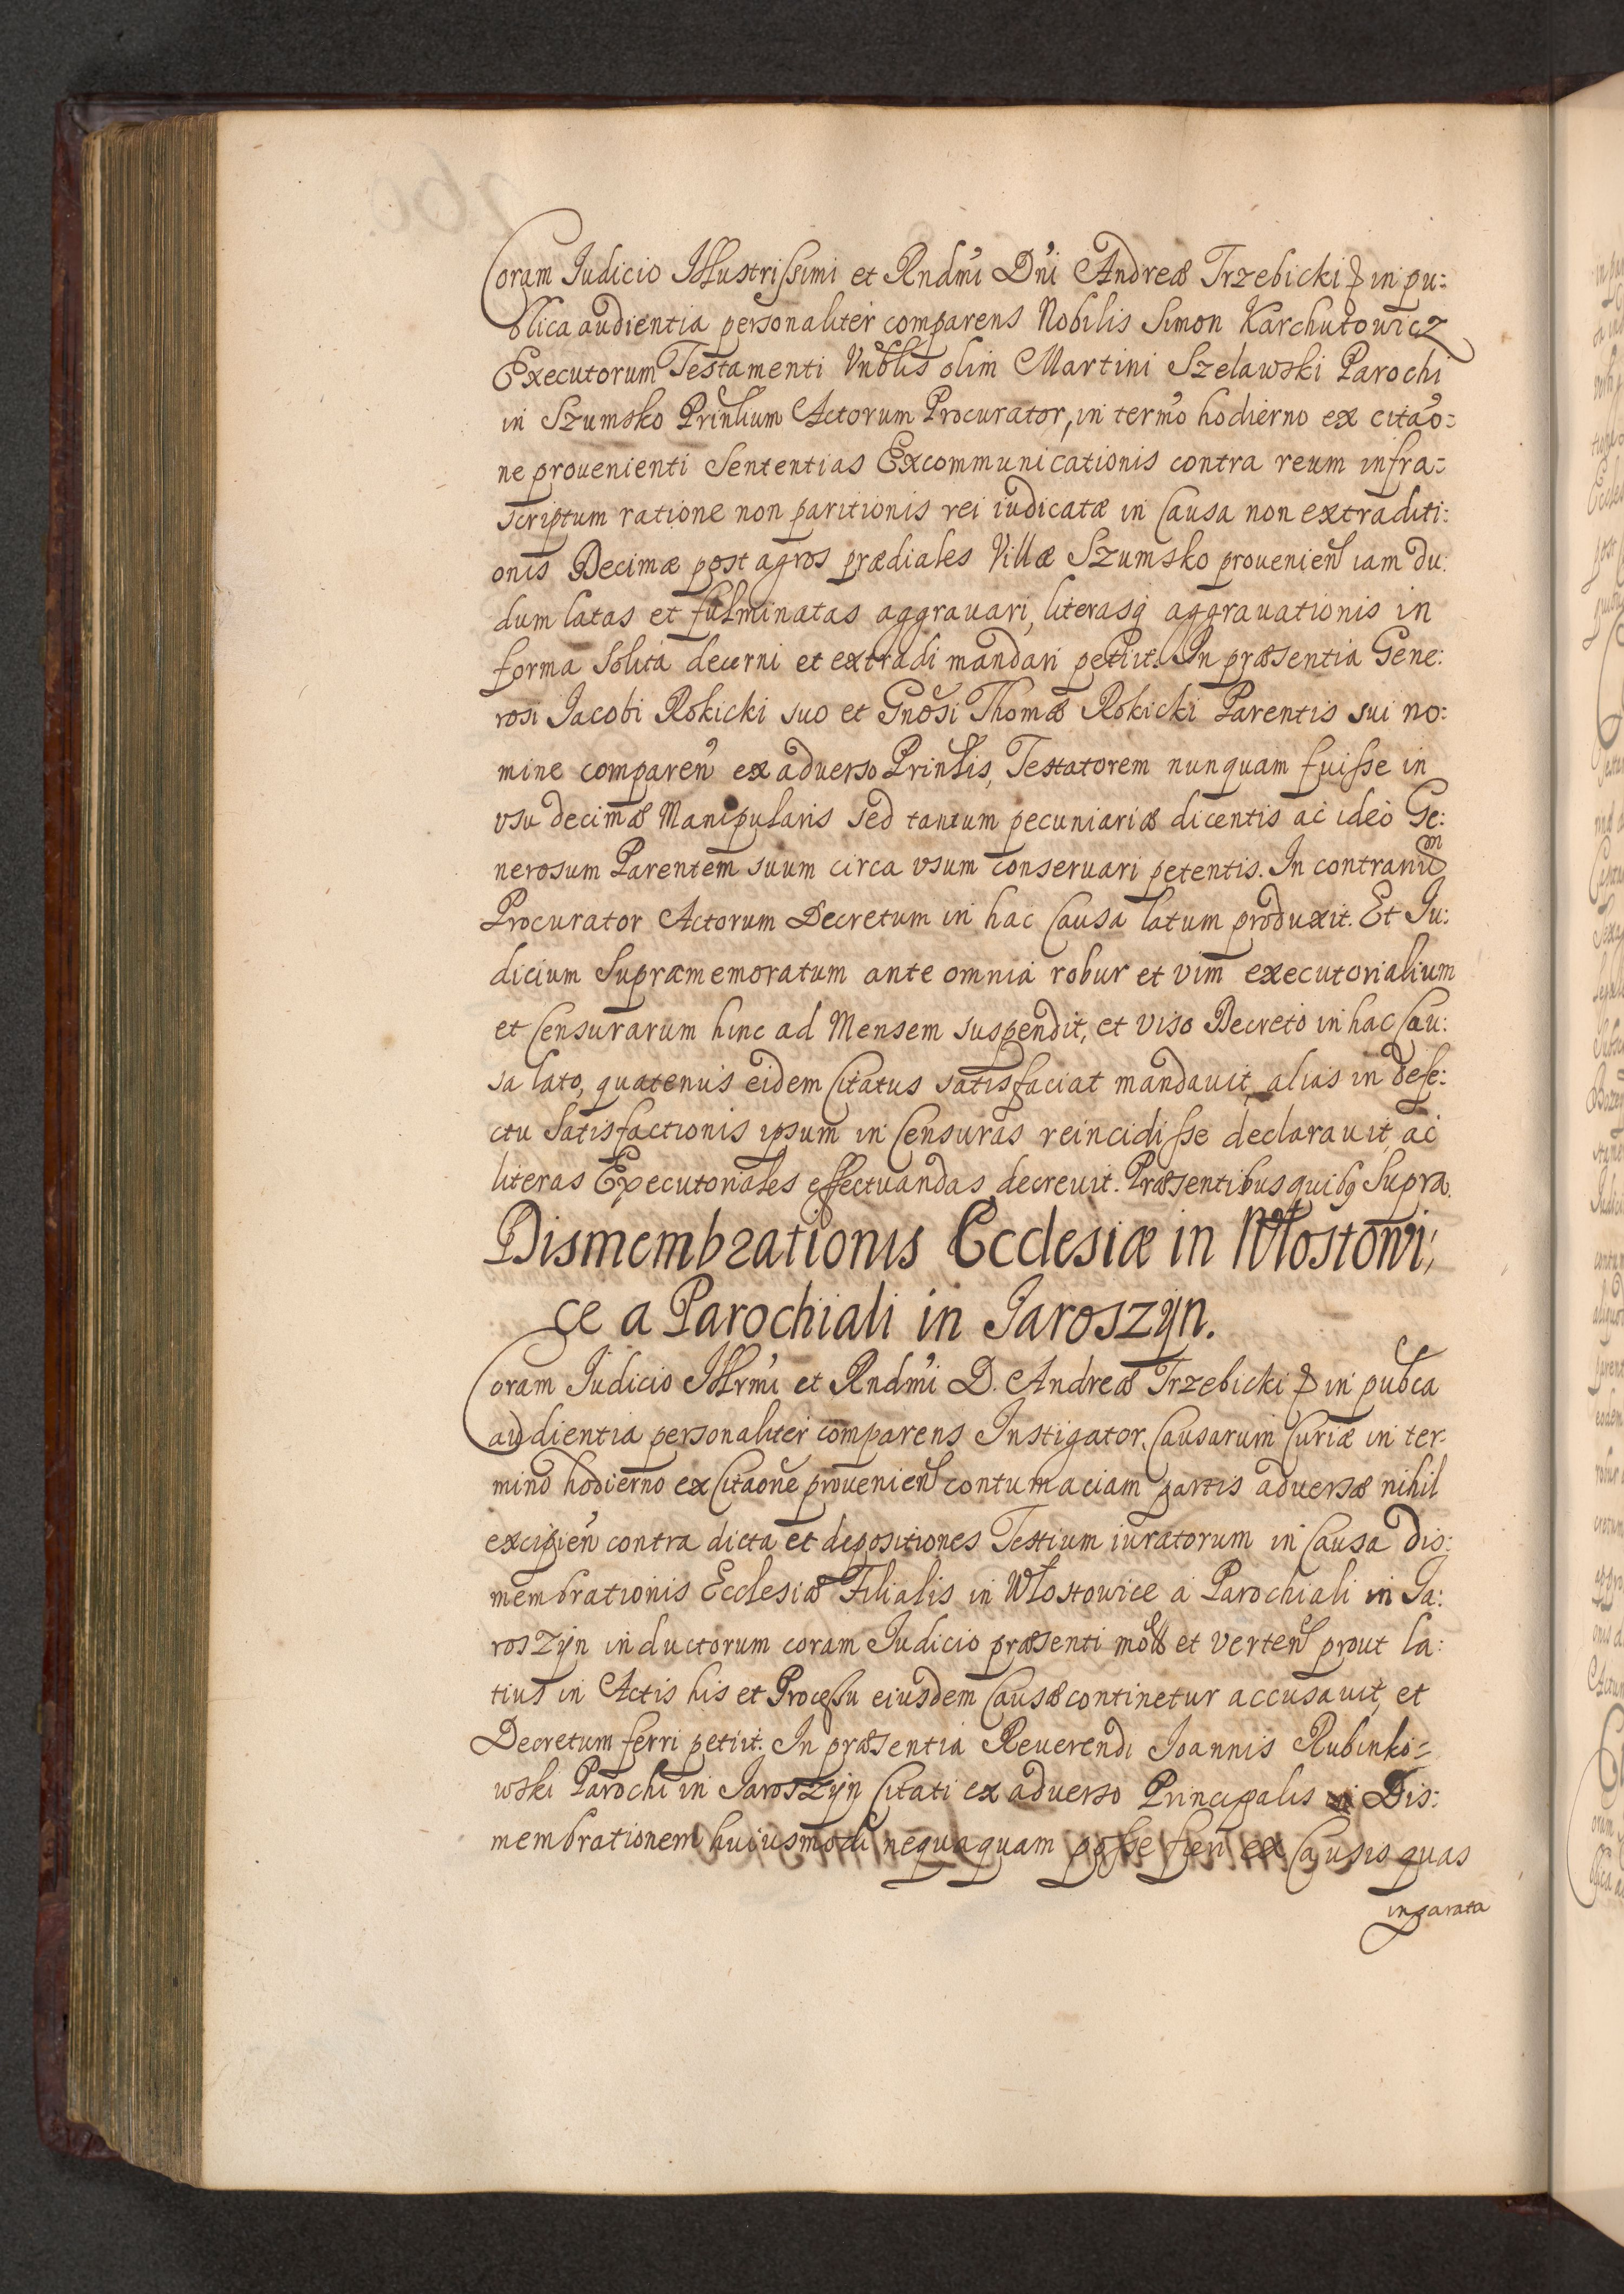 Coram Judicio Illustrissimi et Rndmi Dni Andreæ Trzebicki & in pu:
blica audientia personaliter comparens Nobilis Simon Karchutowicz
Executorum Testamenti Vnblis olim Martini Szelawski Parochi
in Szumsko Prinlium Actorum Procurator, in termo hodierno ex citao:
ne prouenienti Sententias Excommunicationis contra reum infra:
scriptum ratione non paritionis rei iudicatæ in Causa non extraditi:
onis Decimæ post agros prædiales Villæ Szumsko prouenien iam du:
dum latas et fulminatas aggrauari, literasq aggrauationis in
forma solita decerni et extradi mandari petiit. In præsentia Gene:
rosi Jacobi Rokicki suo et Gnosi Thomæ Rokicki Parentis sui no:
mine comparen ex aduerso Prinlis, Testatorem nunquam fuisse in
vsu decimæ Manipularis sed tantum pecuniariæ dicentis ac ideo Ge:
nerosum Parentem suum circa vsum conseruari petentis. In contrarium
Procurator Actorum Decretum in hac Causa latum produxit. Et Ju:
dicium Supramemoratum ante omnia robur et vim executorialium
et Censurarum hinc ad Mensem suspendit, et viso Decreto in hac Cau:
sa lato, quatenus eidem Citatus satisfaciat mandauit, alias in defe:
ctu satisfactionis ipsum in Censuras reincidisse declarauit, ac
literas Executoriales effectuandas decreuit. Præsentibus quibq Supra.
Dismembrationis Ecclesiæ in Włostowi:
ce a Parochiali in Jaroszÿn.
Coram Judicio Illrmi et Rndmi D. Andreæ Trzebicki & in pubca
audientia personaliter comparens Instigator Causarum Curiæ in ter:
mino hodierno ex Citaone prouenien contumaciam partis aduersæ nihil
excipien contra dicta et depositiones Testium iuratorum in Causa dis:
membrationis Ecclesiæ Filialis in Włostowice a Parochiali in Ja:
roszÿn inductorum coram Judicio præsenti mot et verten prout la:
tius in Actis his et Processu eiusdem Causæ continetur accusauit, et
Decretum ferri petiit. In præsentia Reuerendi Joannis Rubinko:
wski Parochi in Jaroszÿn Citati ex aduerso Principalis Dis:
membrationem huiusmodi nequaquam posse fieri ex Causis quas
inparata